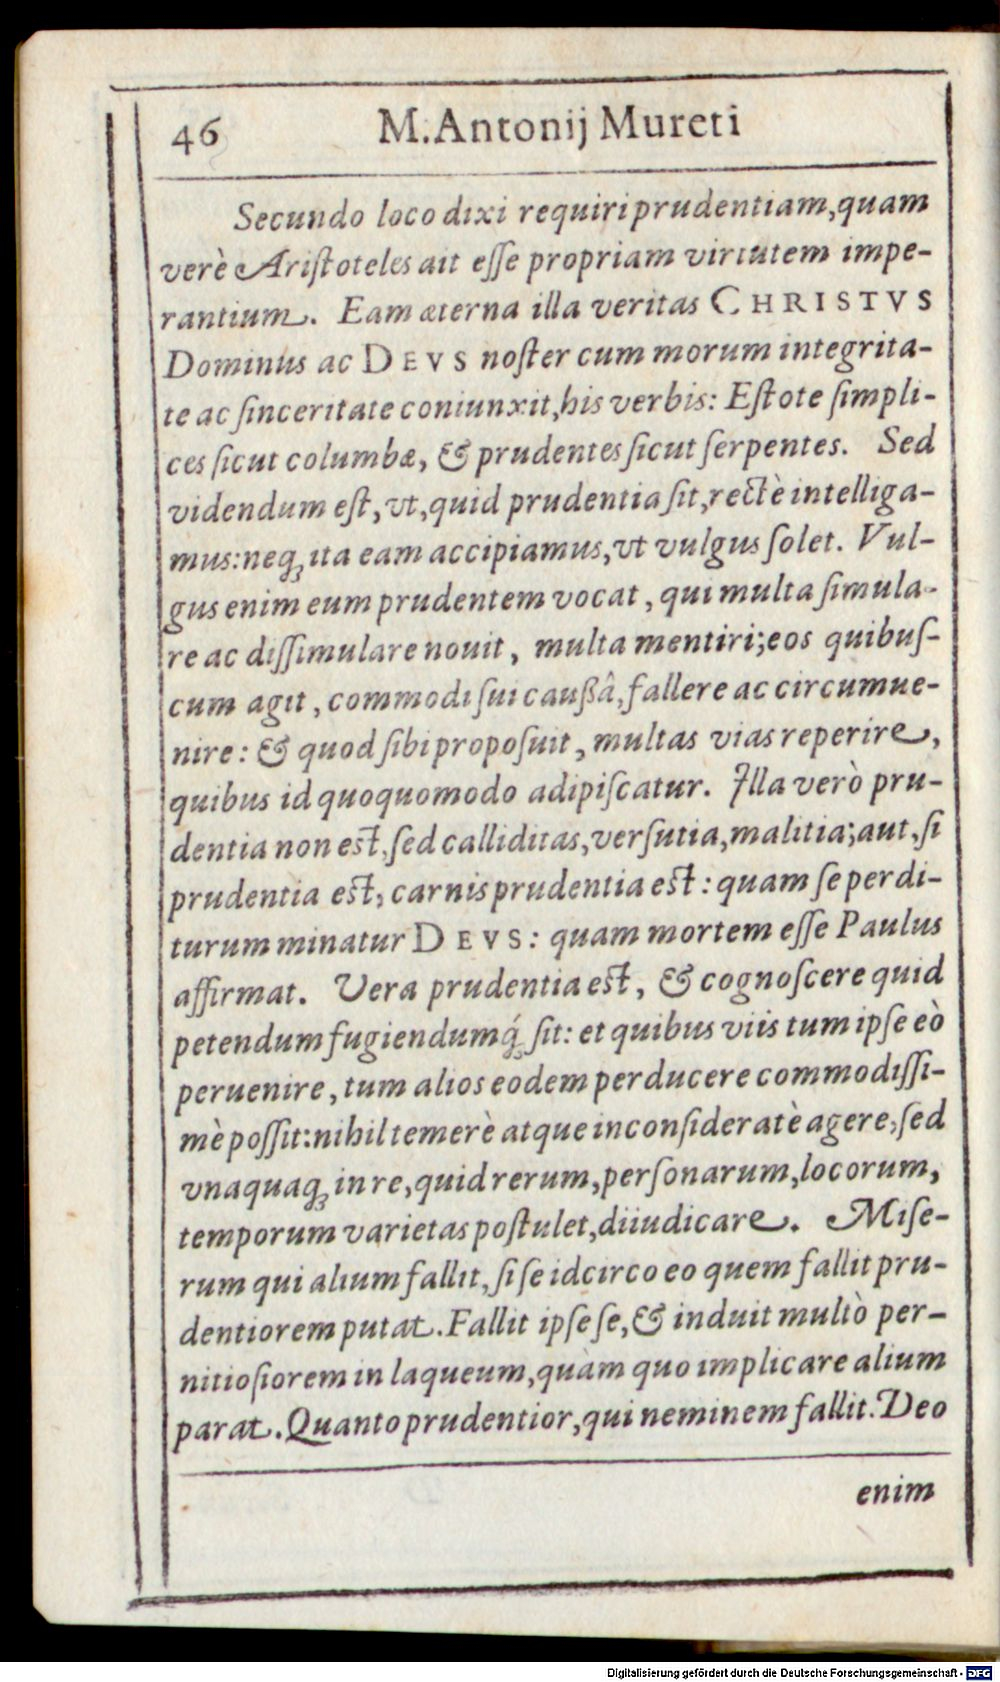 46 M. Antonij Mureti
Secundo loco dixi requiri prudentiam, quam
verè Ariſtoteles ait eſſe propriam virtutem impe-
rantium. Eam æterna illa veritas CHRISTVS
Dominus ac DEVS noſter cum morum integrita-
te ac ſinceritate coniunxit, his verbis: Eſtote ſimpli-
ces ſicut columbæ, & prudentes ſicut ſerpentes. Sed
videndum eſt, vt, quid prudentia ſit, rectè intelliga-
mus: neq́; ita eam accipiamus, vt vulgus ſolet. Vul-
gus enim eum prudentem vocat, qui multa ſimula-
re ac diſſimulare nouit, multa mentiri; eos quibuſ-
cum agit, commodi ſui caußâ, fallere ac circumue-
nire: & quod ſibi propoſuit, multas vias reperire,
quibus id quoquomodo adipiſcatur. Illa verò pru-
dentia non eſt, ſed calliditas, verſutia, malitia; aut, ſi
prudentia eſt, carnis prudentia eſt: quam ſe perdi-
turum minatur DEVS: quam mortem eſſe Paulus
affirmat. Vera prudentia eſt, & cognoſcere quid
petendum fugiendumq́; ſit: et quibus viis tum ipſe eò
peruenire, tum alios eodem perducere commodiſſi-
mè poſſit: nihil temerè atque inconſideratè agere, ſed
vnaquaq; in re, quid rerum, perſonarum, locorum,
temporum varietas poſtulet, diiudicare. Miſe-
rum qui alium fallit, ſi ſe idcirco eo quem fallit pru-
dentiorem putat. Fallit ipſe ſe, & induit multò per-
nitioſiorem in laqueum, quàm quo implicare alium
parat. Quanto prudentior, qui neminem fallit. Deo
enim
Digitalisierung gefördert durch die Deutsche Forschungsgemeinschaft - DFG